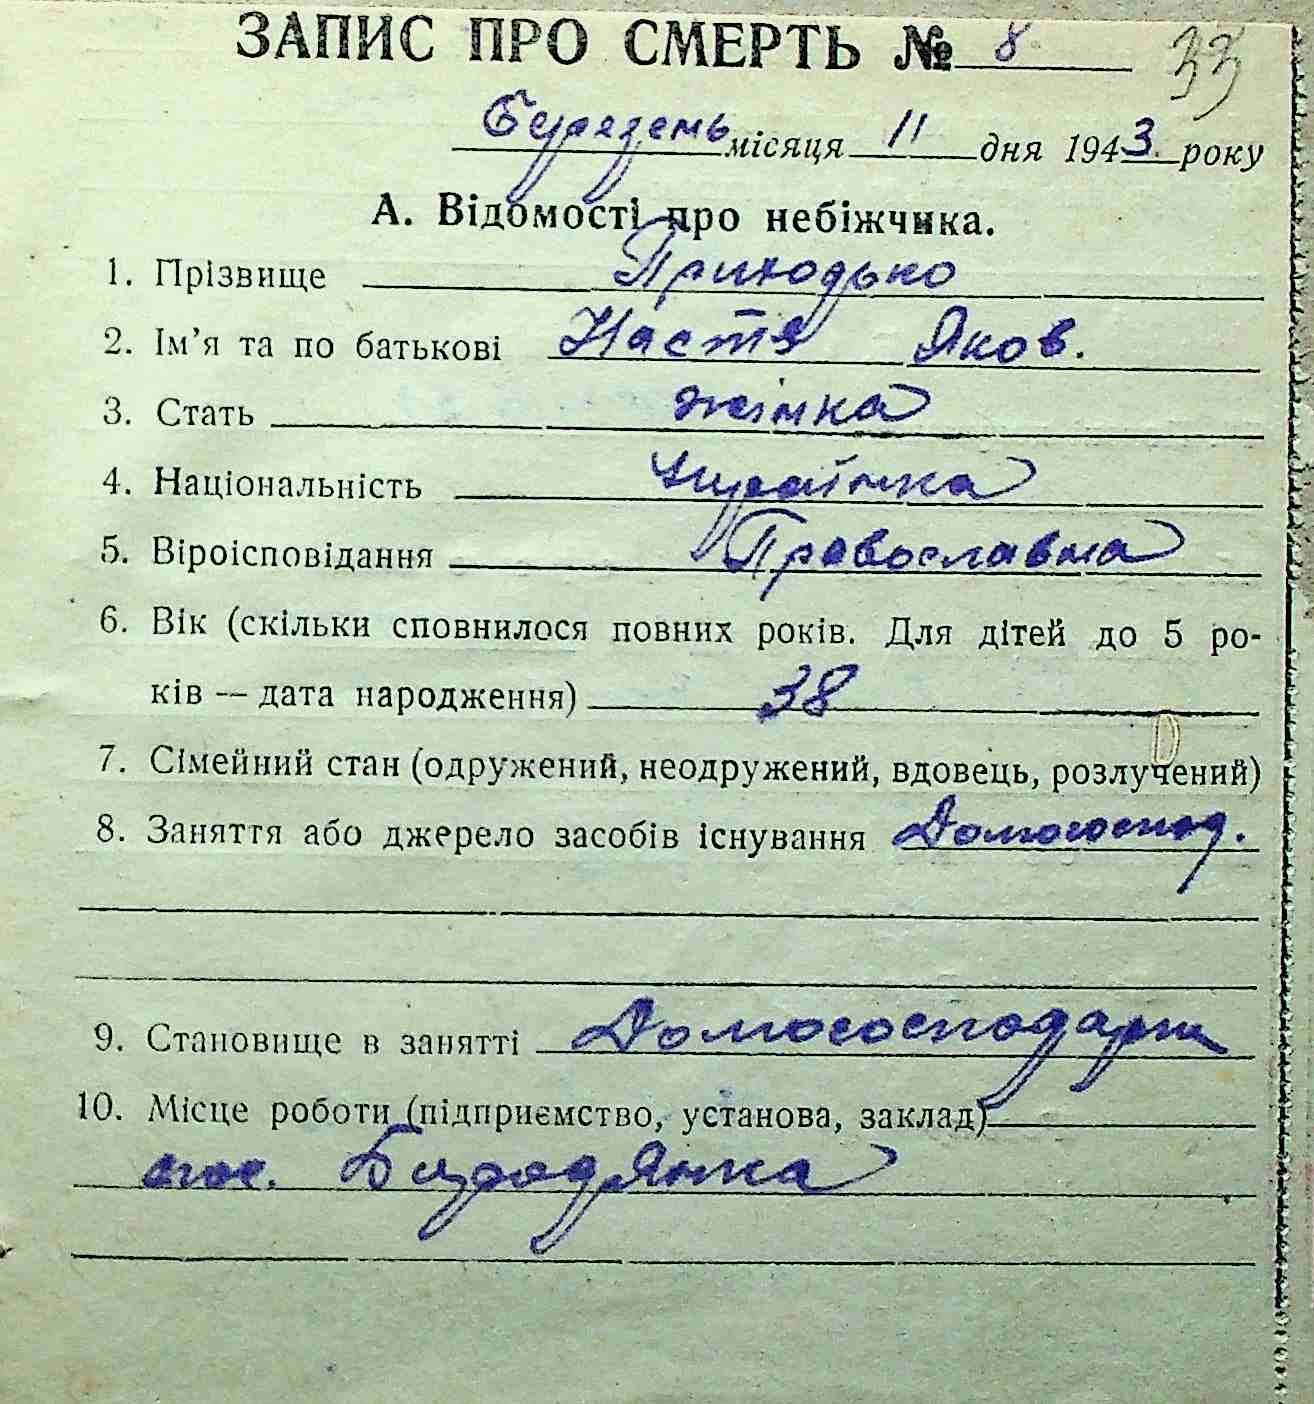 ЗАПИС ПРО СМЕРТЬ № 8 33
Березень місяця 11 дня 1943. року
А. Відомості про небіжчика.
1. Прізвище Приходько
2. Ім’я та по батькові Настя Яков.
3. Стать жінка
4. Національність Українка
5. Віроісповідання Православна
6. Вік (скільки сповнилося повних років. Для дітей до 5 ро-
ків — дата народження) 38
7. Сімейний стан (одружений, неодружений, вдовець, розлучений)
8. Заняття або джерело засобів існування Домогоспод.
9. Становище в занятті Домогосподарка
10. Місце роботи (підприємство, установа, заклад)
Бородянка